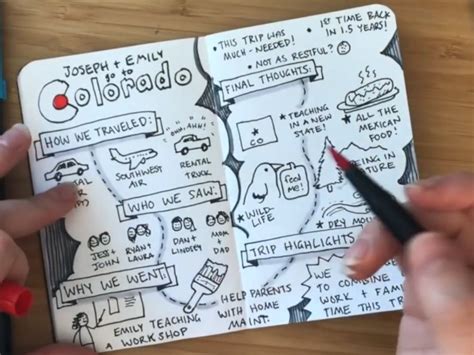 JOSEPH + EMILY
go to
Colorado
HOW WE TRAVELED:
SOUTHWEST
AIR
"OHH, AHH!"
RENTAL
TRUCK
WHO WE SAW:
JESS +
JOHN
RYAN +
LAURA
DAN +
LINDSEY
MOM +
DAD
WHY WE WENT
EMILY TEACHING
A WORKSHOP
HELP PARENTS
WITH HOME
MAINT.
• THIS TRIP WAS
MUCH-NEEDED!
• 1ST TIME BACK
IN 1.5 YEARS!
• NOT AS RESTFUL?
FINAL THOUGHTS:
CO
★ TEACHING
IN A NEW
STATE!
★ ALL THE
MEXICAN
FOOD!
FEED
ME!
★ WILD-
LIFE
BEING IN
★ DRY
TRIP HIGHLIGHTS
WE
TO COMBINE
WORK + FAMILY
TIME THIS